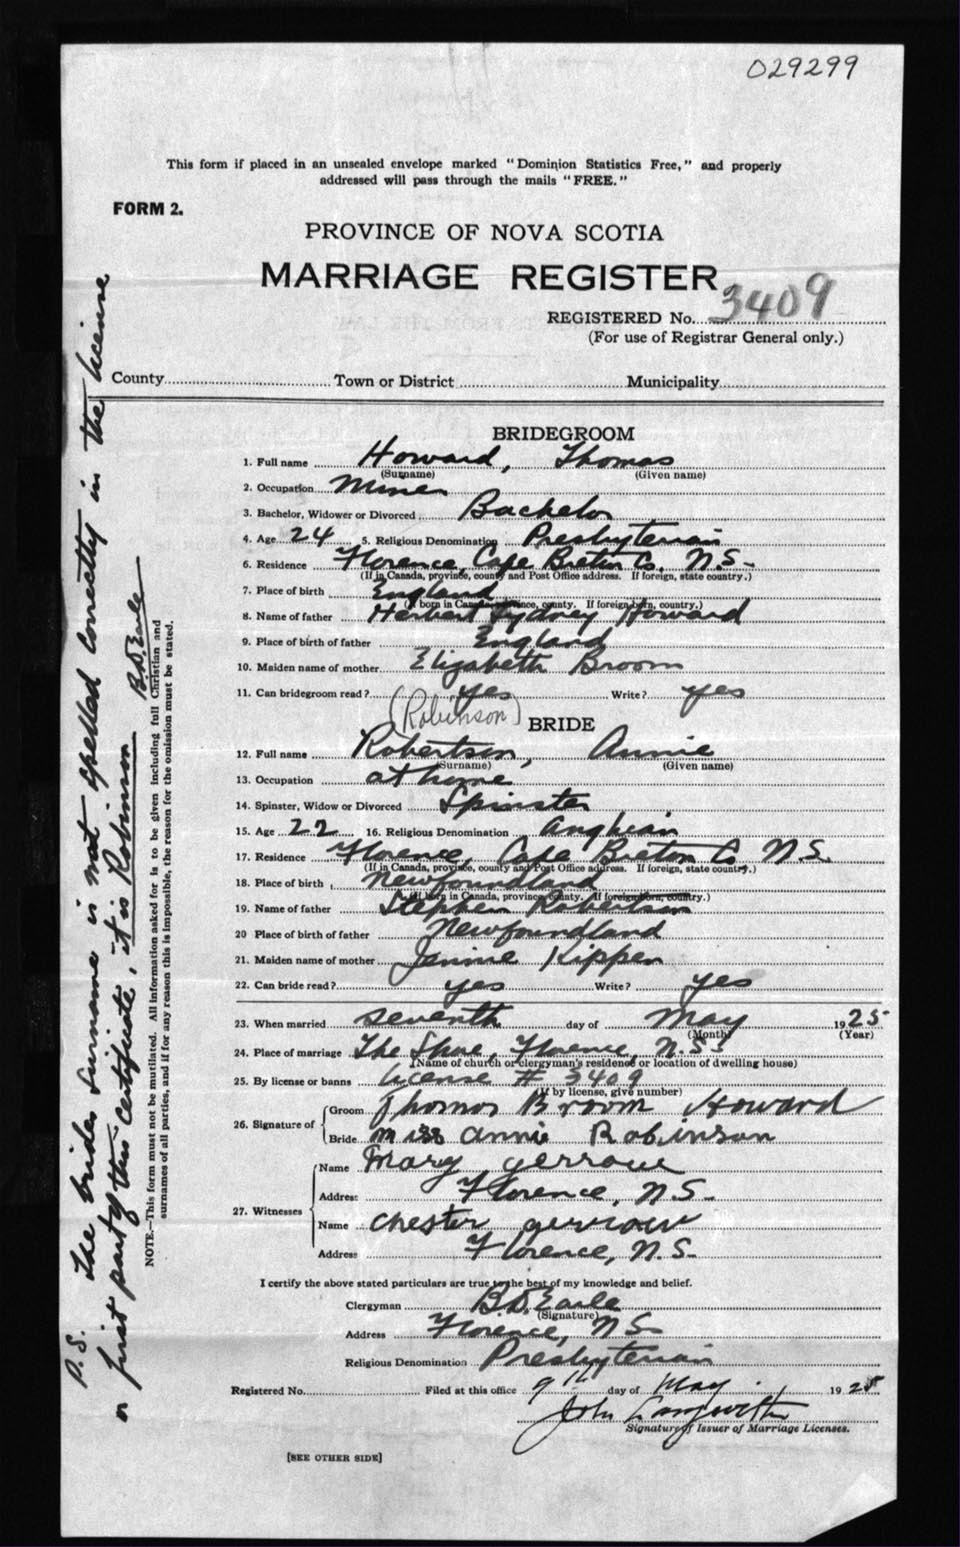 029299
This form if placed in an unsealed envelope marked "Dominion Statistics Free," and properly
addressed will pass through the mails "FREE."
FORM 2.
PROVINCE OF NOVA SCOTIA
MARRIAGE REGISTER
REGISTERED No. 3409
(For use of Registrar General only.)
County Town or District Municipality
BRIDEGROOM
1. Full name Howard, Thomas
(Surname) (Given name)
2. Occupation Miner
3. Bachelor, Widower or Divorced Bachelor
4. Age 24 5. Religious Denomination Presbyterian
6. Residence Florence, Cape Breton Co. N.S.
(If in Canada, province, county and Post Office address. If foreign, state country.)
7. Place of birth England
(If born in Canada, province, county. If foreign born, country.)
8. Name of father Herbert Sydney Howard
9. Place of birth of father England
10. Maiden name of mother Elizabeth Broom
11. Can bridegroom read? yes Write? yes
(Robinson)
BRIDE
12. Full name Robertson, Annie
(Surname) (Given name)
13. Occupation at home
14. Spinster, Widow or Divorced Spinster
15. Age 22 16. Religious Denomination Anglican
17. Residence Florence, Cape Breton Co N.S.
(If in Canada, province, county and Post Office address. If foreign, state country.)
18. Place of birth Newfoundland
(If born in Canada, province, county. If foreign born, country.)
19. Name of father Stephen Robertson
20 Place of birth of father Newfoundland
21. Maiden name of mother Jennie Kippen
22. Can bride read? yes Write? yes
23. When married seventh day of May 1925
(Month) (Year)
24. Place of marriage The Shore, Florence, N.S.
(Name of church or clergyman's residence or location of dwelling house)
25. By license or banns License # 3409
(If by license, give number)
26. Signature of Groom Thomas Broom Howard
Bride Miss Annie Robinson
27. Witnesses Name Mary
Address Florence, N.S.
Name Chester
Address Florence, N.S.
I certify the above stated particulars are true to the best of my knowledge and belief.
Clergyman B.D. Earle
(Signature)
Address Florence, N S
Religious Denomination Presbyterian
Registered No. Filed at this office 9th day of May 1925
John
Signature of Issuer of Marriage Licenses.
[SEE OTHER SIDE]
P.S. The brides surname is not spelled correctly in the license
or first part of this certificate, it is Robinson B.D. Earle
NOTE.—This form must not be mutilated. All information asked for is to be given including full Christian and
surnames of all parties, and if for any reason this is impossible, the reason for the omission must be stated.